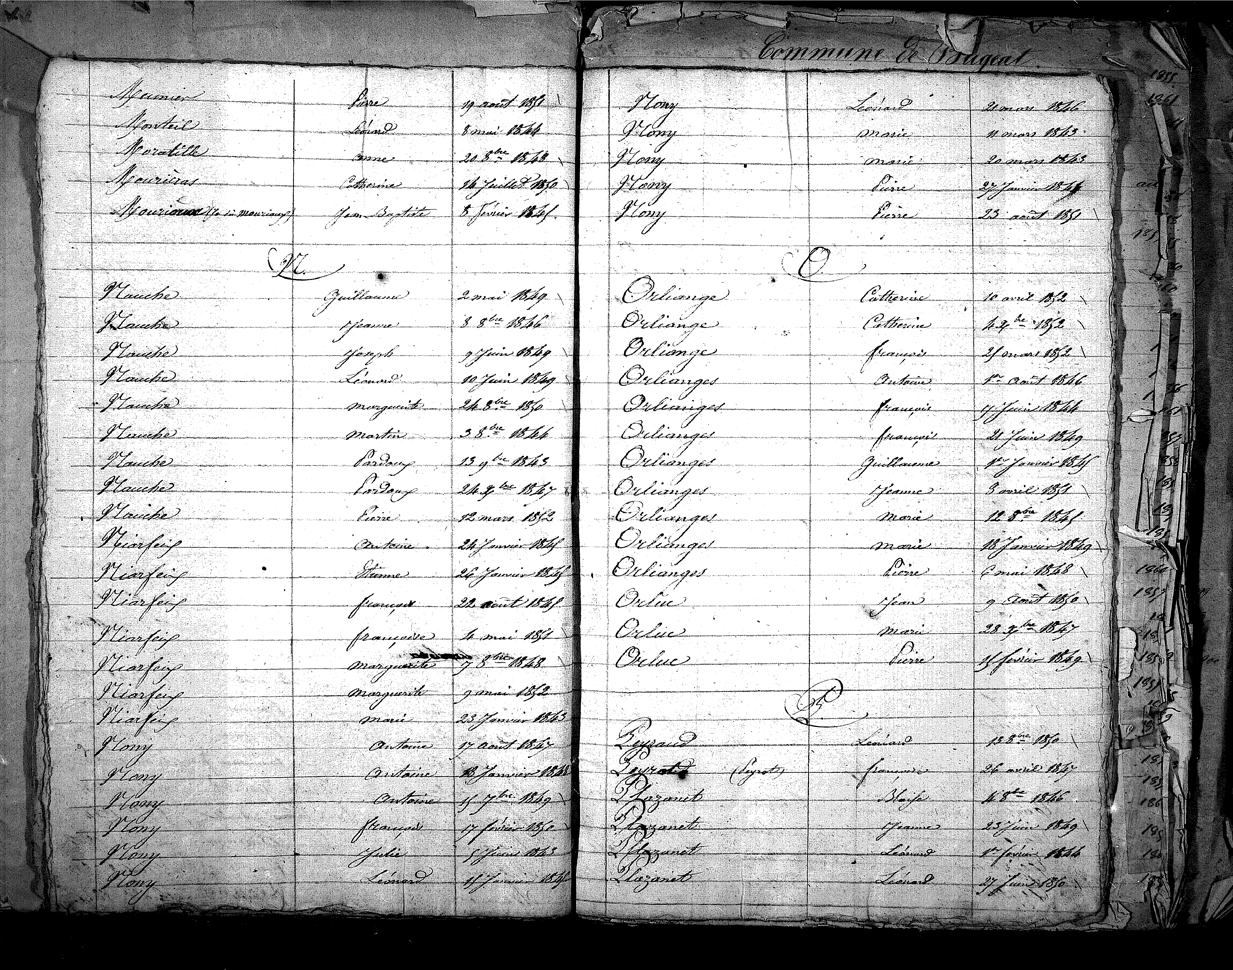 Commune de Bugeat
Meunier Pierre 19 août 1851
Monteil Léonard 8 mai 1844
Moratille anne 20 8bre 1848
Mouricas Catherine 24 Juillet 1850
Mourioux Jean Baptiste 8 février 1845
N.
Nauche Guillaume 2 mai 1849
Nauche Jeanne 8 8bre 1846
Nauche Joseph 9 Juin 1849
Nauche Léonard 10 Juin 1849
Nauche marguerite 24 8bre 1850
Nauche martin 3 8bre 1844
Nauche Pardoux 13 9bre 1843
Nauche Pardoux 24 Xbre 1847
Nauche Pierre 12 mars 1852
Niarfeix antoine 24 Janvier 1845
Niarfeix Etienne 26 Janvier 1845
Niarfeix françois 22 août 1845
Niarfeix françoise 4 mai 1851
Niarfeix marguerite 7 8bre 1848
Niarfeix marguerite 9 mai 1852
Niarfeix marie 23 Janvier 1843
Nony Antoine 17 août 1847
Nony Antoine 13 Janvier 1848
Nony Antoine 15 7bre 1849
Nony françois 17 février 1850
Nony Julie 5 Juin 1843
Nony Léonard 15 Janvier
Nony Léonard 21 mars 1846
Nony marie 11 mars 1843
Nony marie 20 mars 1843
Nony Pierre 27 Janvier
Nony Pierre 23 août 1851
O
Orliange Catherine 10 avril 1852
Orliange Catherine 4 Xbre 1852
Orliange françois 25 mars 1852
Orlianges antoine 1er août 1846
Orlianges françois Juin 1844
Orlianges françois 21 Juin 1849
Orlianges Guillaume 1er Janvier 1845
Orlianges Jeanne 3 avril 1851
Orlianges marie 12 8bre 1845
Orlianges marie 18 Janvier 1849
Orlianges Pierre 6 mai 1848
Orluc Jean 9 août 1850
Orluc marie 28 Xbre 1847
Orluc Pierre 15 février 1849
P
Peyraud Léonard 13 8bre 1850
(Peyrot) françois 26 avril 1847
Plazanet Blaise 4 8bre 1846
Plazanet Jeanne 23 Juin 1849
Plazanet Léonard 1er février 1844
Plazanet Léonard 27 Juin 1850